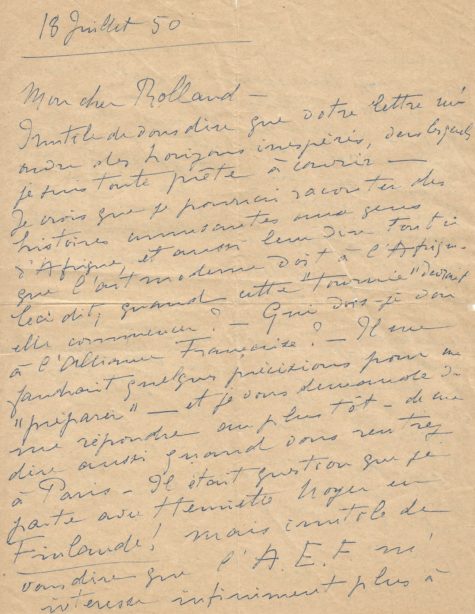 18 Juillet 50
Mon cher Rolland —
Inutile de vous dire que votre lettre m'a
ouvre des horizons inespérés, vers lesquels
je suis toute prête à courir —
Je crois que je pourrai raconter des
histoires amusantes aux gens
d'Afrique, et aussi leur dire tout ce
que l'art moderne doit à l'Afrique.
Ceci dit, quand cette "tournée" devrait
elle commencer ? — Qui dois-je voir
à l'Alliance Française ? — Il me
faudrait quelques précisions pour me
"préparer" — et je vous demande de
me répondre au plus tôt — de me
dire aussi quand vous rentrez
à Paris — Il était question que je
parte avec Henriette Noyer en
Finlande ! mais inutile de
vous dire que l'A.E.F m'
intéresse infiniment plus à